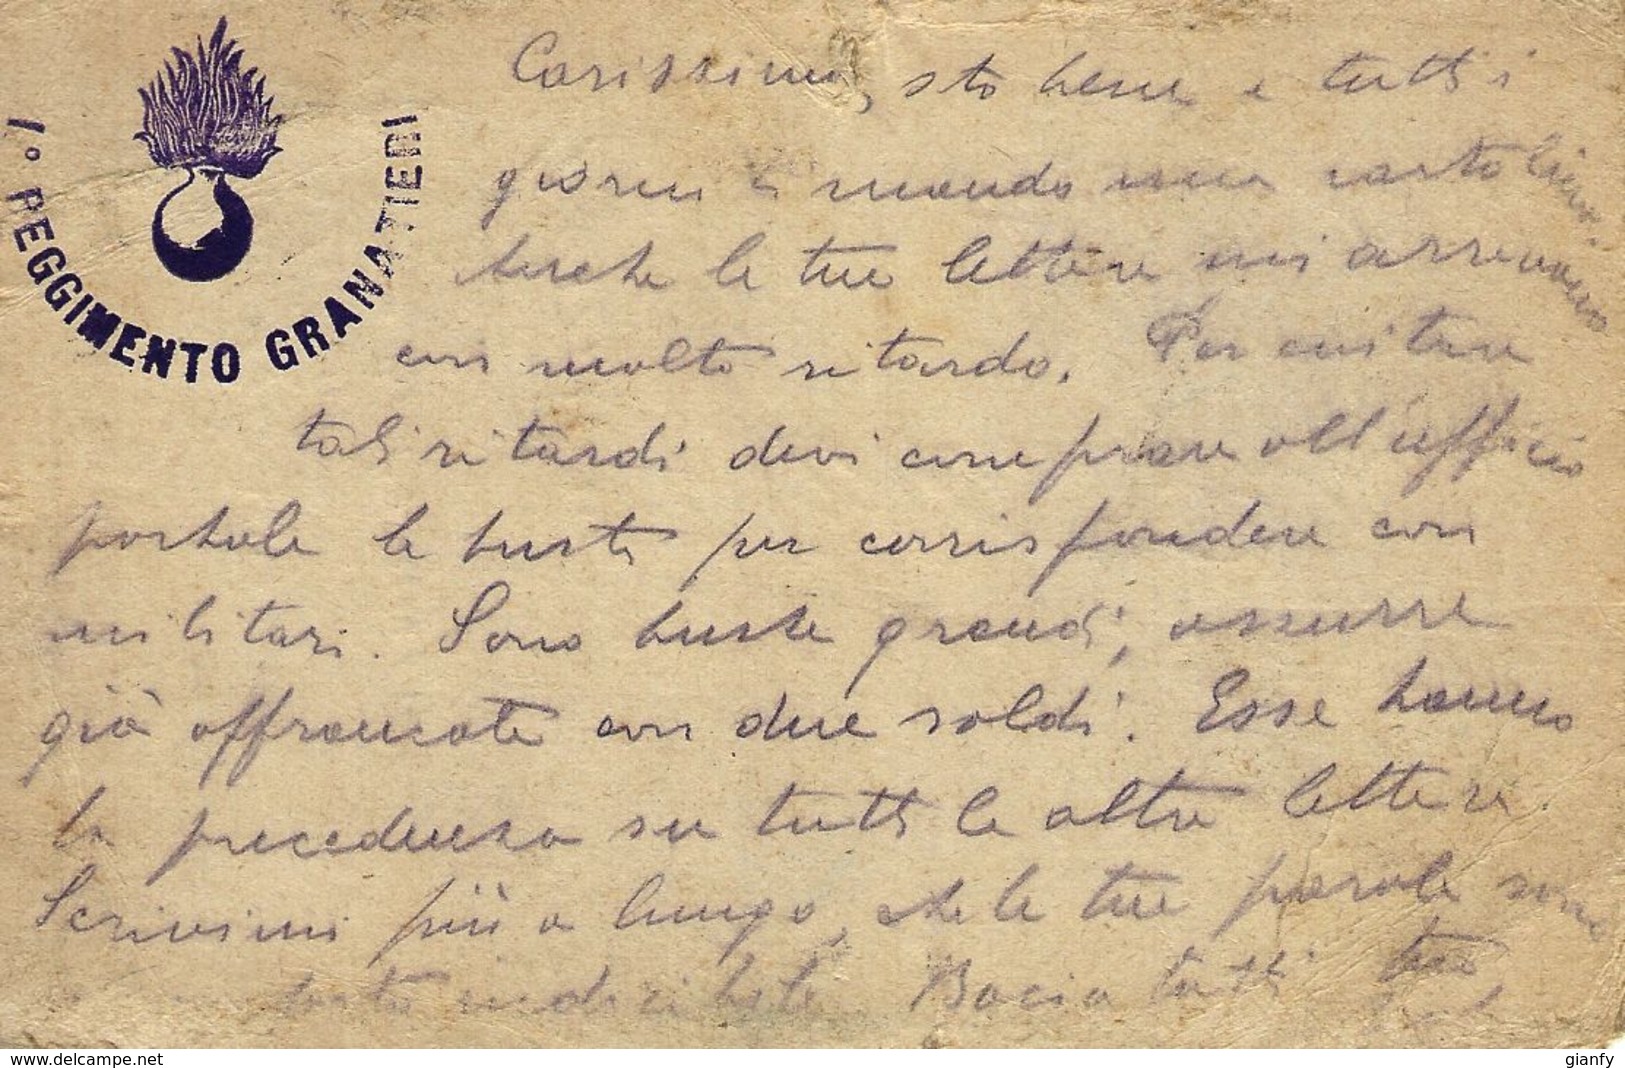 1° REGGIMENTO GRANATIERI
Carissima, sto bene e tutti i
giorni ti mando una cartolina.
Anche le tue lettere mi arrivano
con molto ritardo. Per evitare
tali ritardi devi comprare all'ufficio
postale le buste per corrispondere con
militari. Sono buste grandi, azzurre
già affrancate con due soldi. Esse hanno
la precedenza su tutte le altre lettere.
Scrivimi più a lungo, che le tue parole sono
Bacia tutti tuo
www.delcampe.net
gianfy